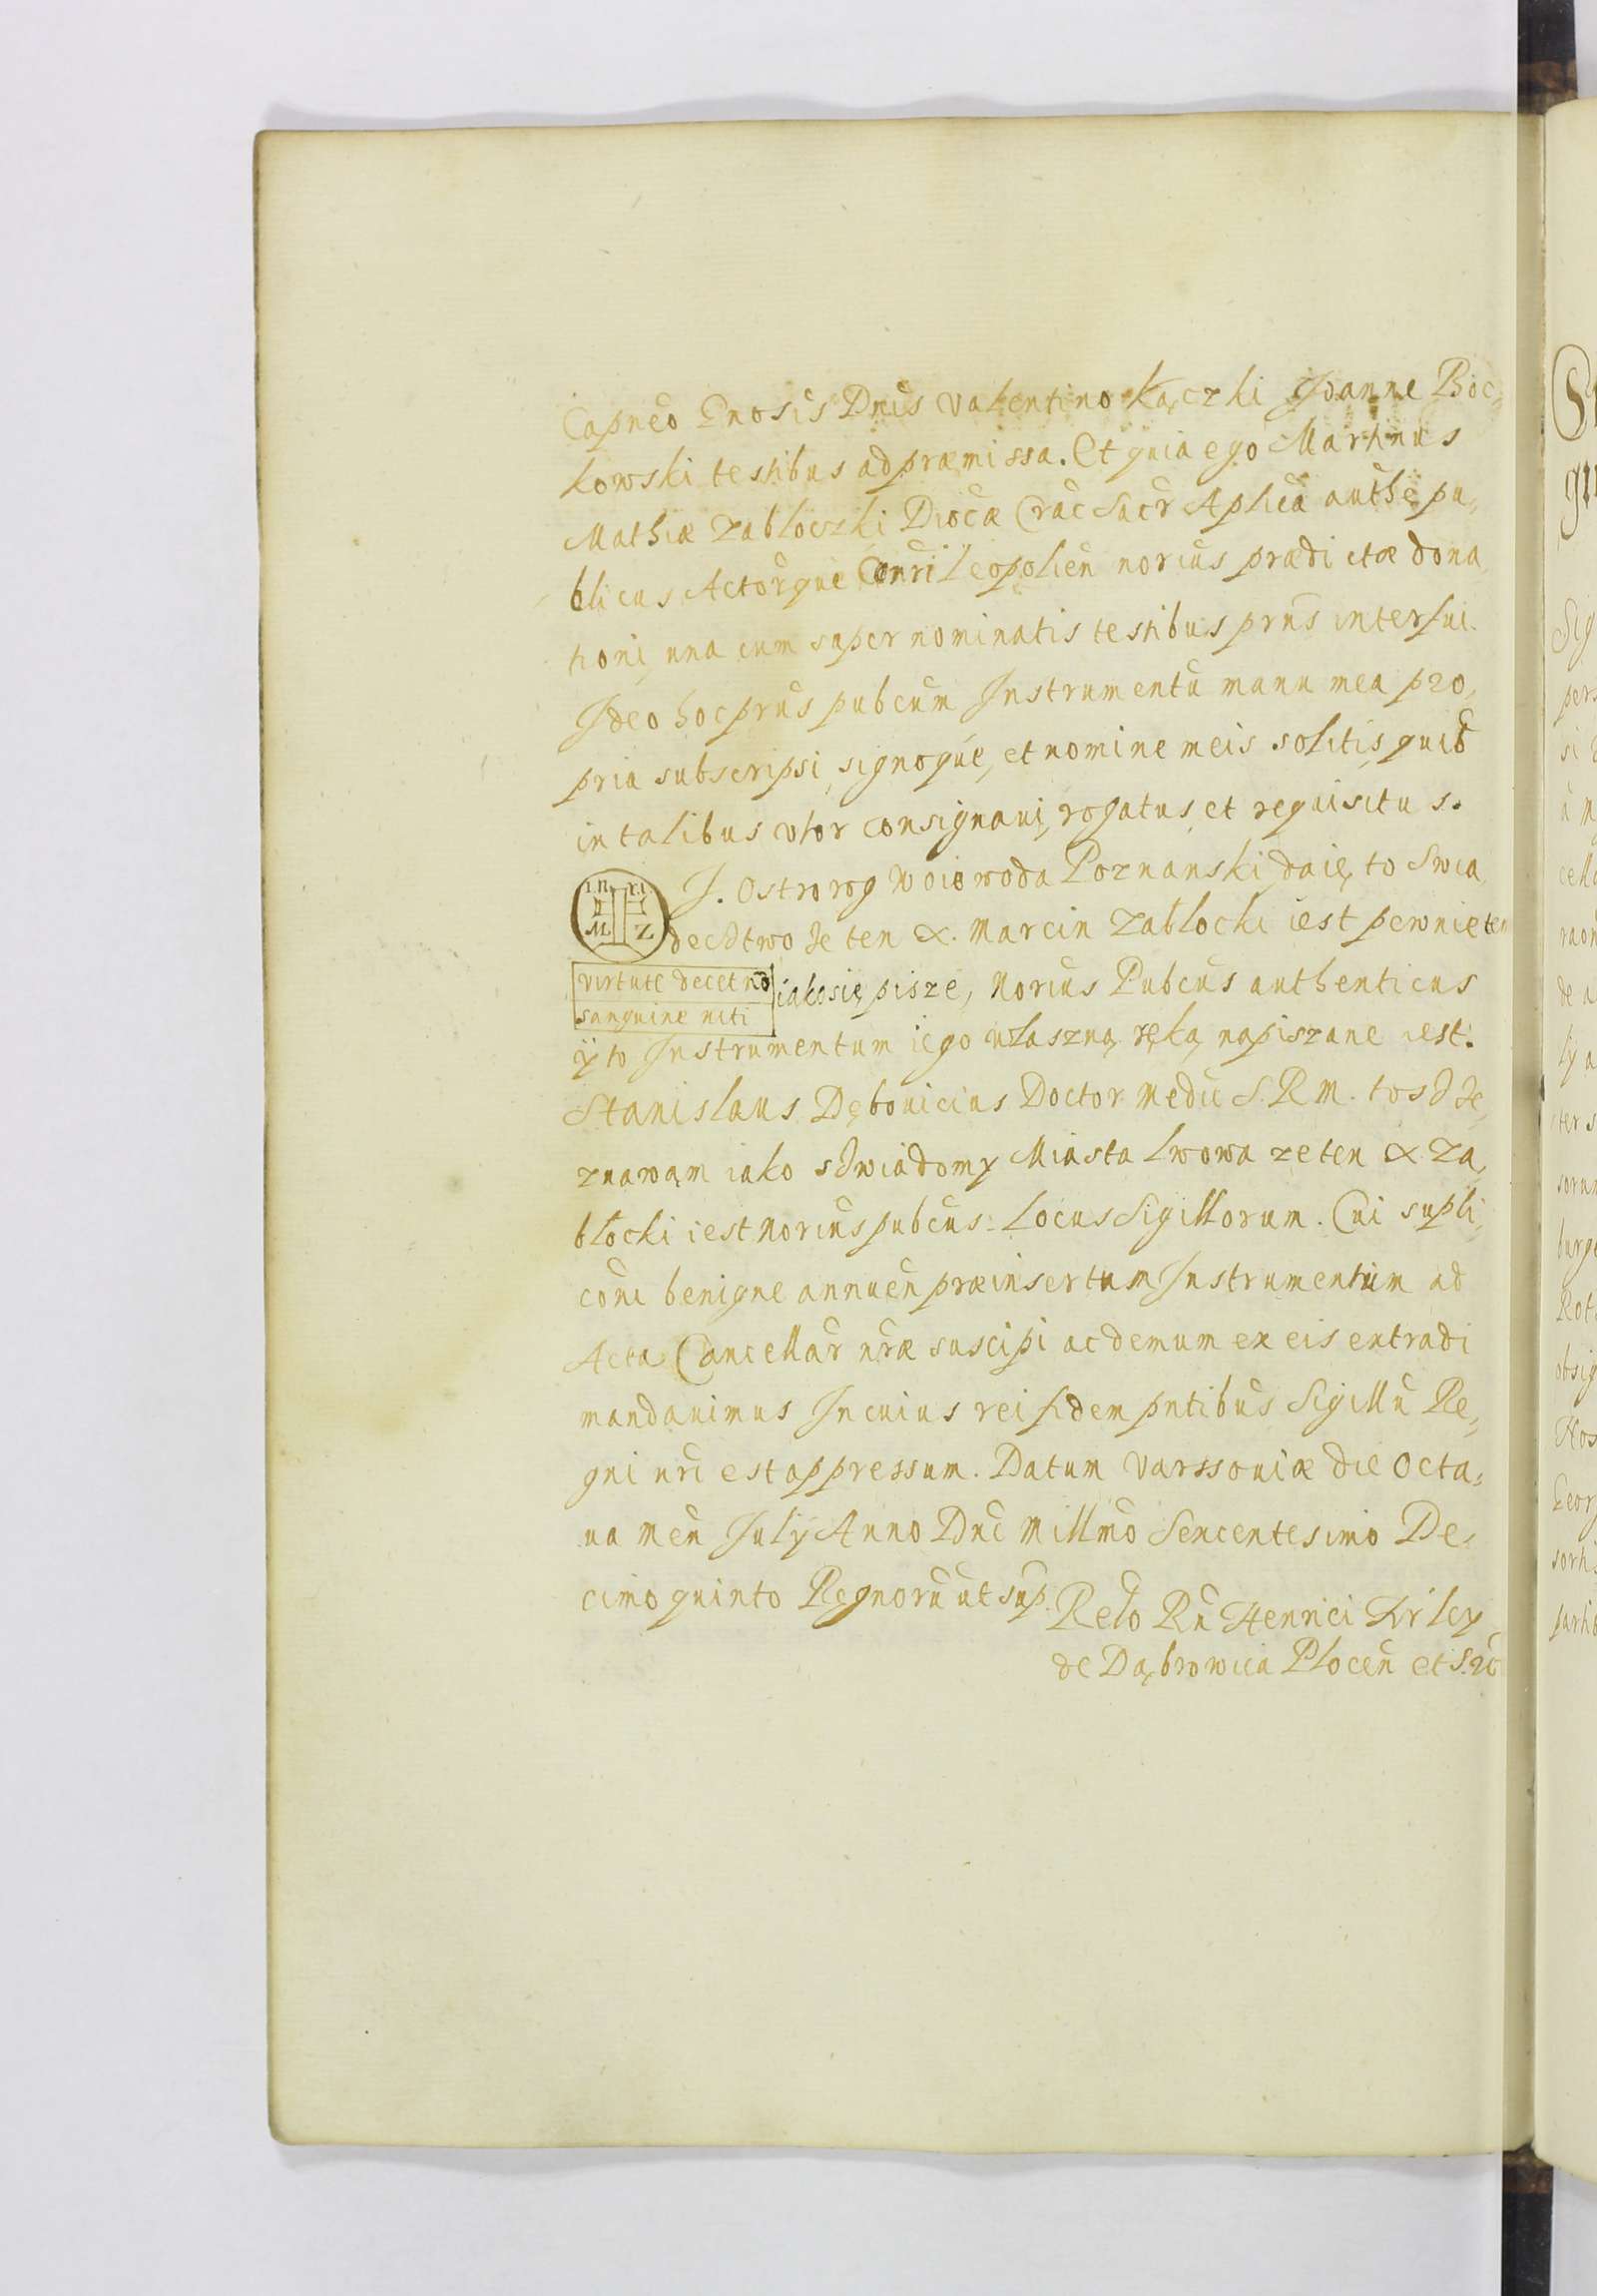 Capneo Gnosis Dnis Valentino Kączki Joanne Boc,
kowski testibus ad præmissa. Et quia ego Martinus
Mathiæ Zabloczki Diocæ Crac Sacr Aplica authe pu,
blicus Actorque Conri Leopolien norius prædictæ dona,
tioni, una cum super nominatis testibus prns interfui.
Ideo hoc prns pubcum Instrumentu manu mea pro,
pria subscripsi, signoque, et nomine meis solitis, quib
in talibus utor consignavi, rogatus, et requisitus.
I.N. R.I.
M Z
J. Ostrorog Woiewoda Poznanski daię to Swia
decstwo że ten X. Marcin Zablocki iest pewnie ten
virtute decet nō
sanguine niti
iako się pisze, Norius Pubcus authenticus
ÿ to Instrumentum iego właszną ręką napiszane iest.
Stanislaus Dębouicius Doctor Medic S. R M. tosz ze,
znawąm iako szwiadomy Miasta Lwowa ze ten X Za,
blocki iest Norius pubcus. Locus Sigillorum. Cui supli,
coni benigne annuen præinsertum Instrumentum ad
Acta Cancellar nræ suscipi ac demum ex eis extradi
mandauimus In cuius rei fidem pntibus Sigillu Re,
gni nri est appressum. Datum Varssouiæ die Octa,
ua Men July Anno Dni Millmo Sexcentesimo De,
cimo quinto Regnoru ut sup.
Relo Rn Henrici Firley
de Dąbrowica Plocen et S.